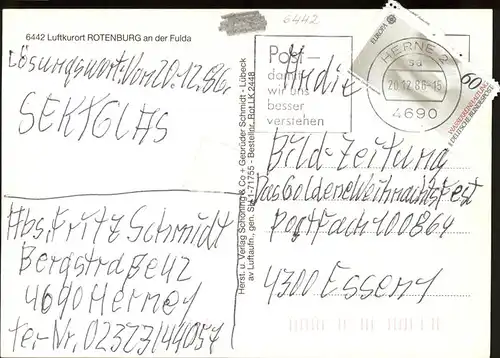 6442
6442 Luftkurort ROTENBURG an der Fulda
Lösungswort: Vom 20.12.86,
SEKTGLAS
Abs. Fritz Schmidt
Bergstraße 42
4690 Herne 1
Ter-Nr. 02323/44057
Herst. u. Verlag Schöning & Co + Gebrüder Schmidt - Lübeck
av Luftaufn., gen. SH 1-71755 - Bestellnr. Rot LK 2448
Post-
damit
wir uns
besser
verstehen
HERNE 2
sd
20.12.86-15
4690
EUROPA
60
WASSERREINHALTUNG
DEUTSCHE BUNDESPOST
An die
Bild-Zeitung
Das Goldene Weihnachtsfest
Postfach 100864
4300 Essen 1